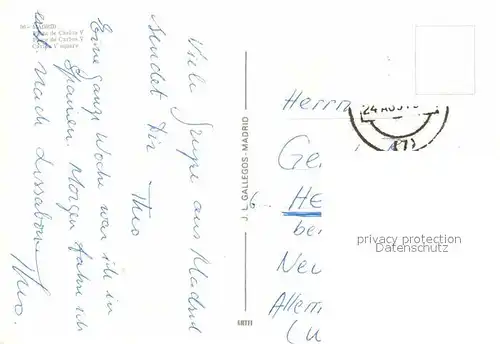 86 - MADRID
de Carlos V
de Carlos V
Carlos V square
Viele Grüße aus Madrid
sendet Dir Theo
Eine ganze Woche war ich in
Spanien. Morgen fahre ich
nach Lissabon. Theo.
J. L. GALLEGOS-MADRID
ARTFI
Herrn
24 AGO
Ge
6 He
bei
Neu
Allem
(W
privacy protection
Datenschutz